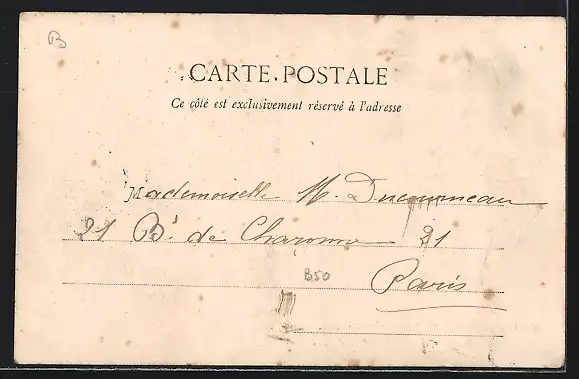 B
CARTE POSTALE
Ce côté est exclusivement réservé à l'adresse
Mademoiselle M. Ducourneau
21 Bd de Charonne 21
B50
Paris